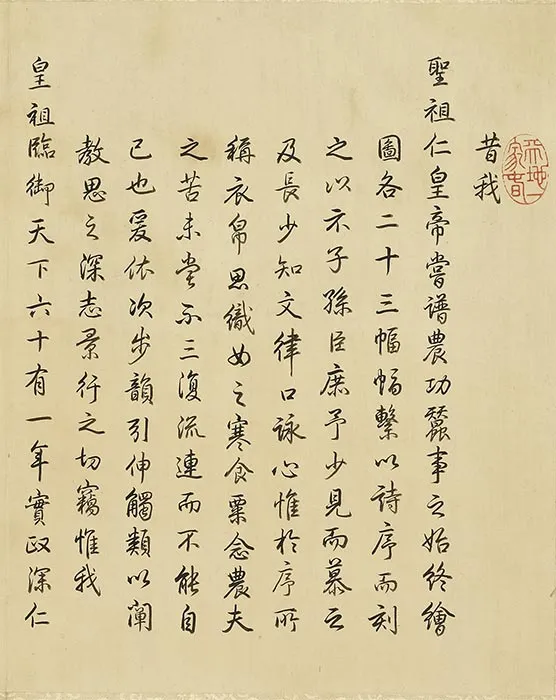 昔我
聖祖仁皇帝嘗譜農功蠶事之始終繪
圖各二十三幅幅繫以詩序而刻
之以示子孫臣庶予少見而慕之
及長少知文律口詠心惟於序所
稱衣帛思織女之寒食粟念農夫
之苦未嘗不三復流連而不能自
已也爰依次步韻引伸觸類以闡
教思之深志景行之切竊惟我
皇祖臨御天下六十有一年實政深仁